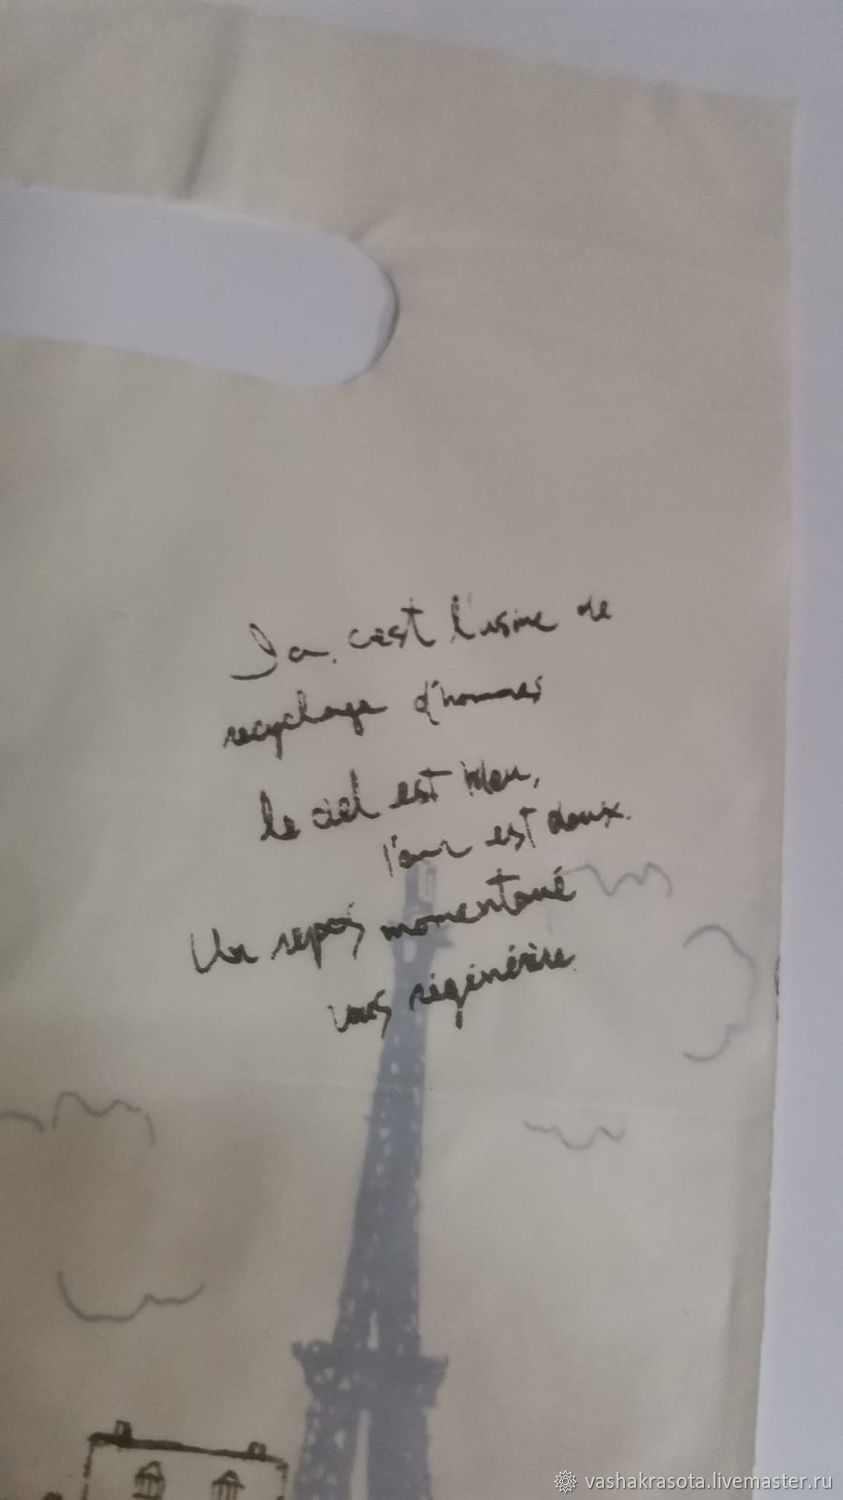 Ia, c'est l'usine de
recyclage d'hommes
le ciel est bleu,
l'air est doux.
Un repos momentané
vous régénère.
vashakrasota.livemaster.ru